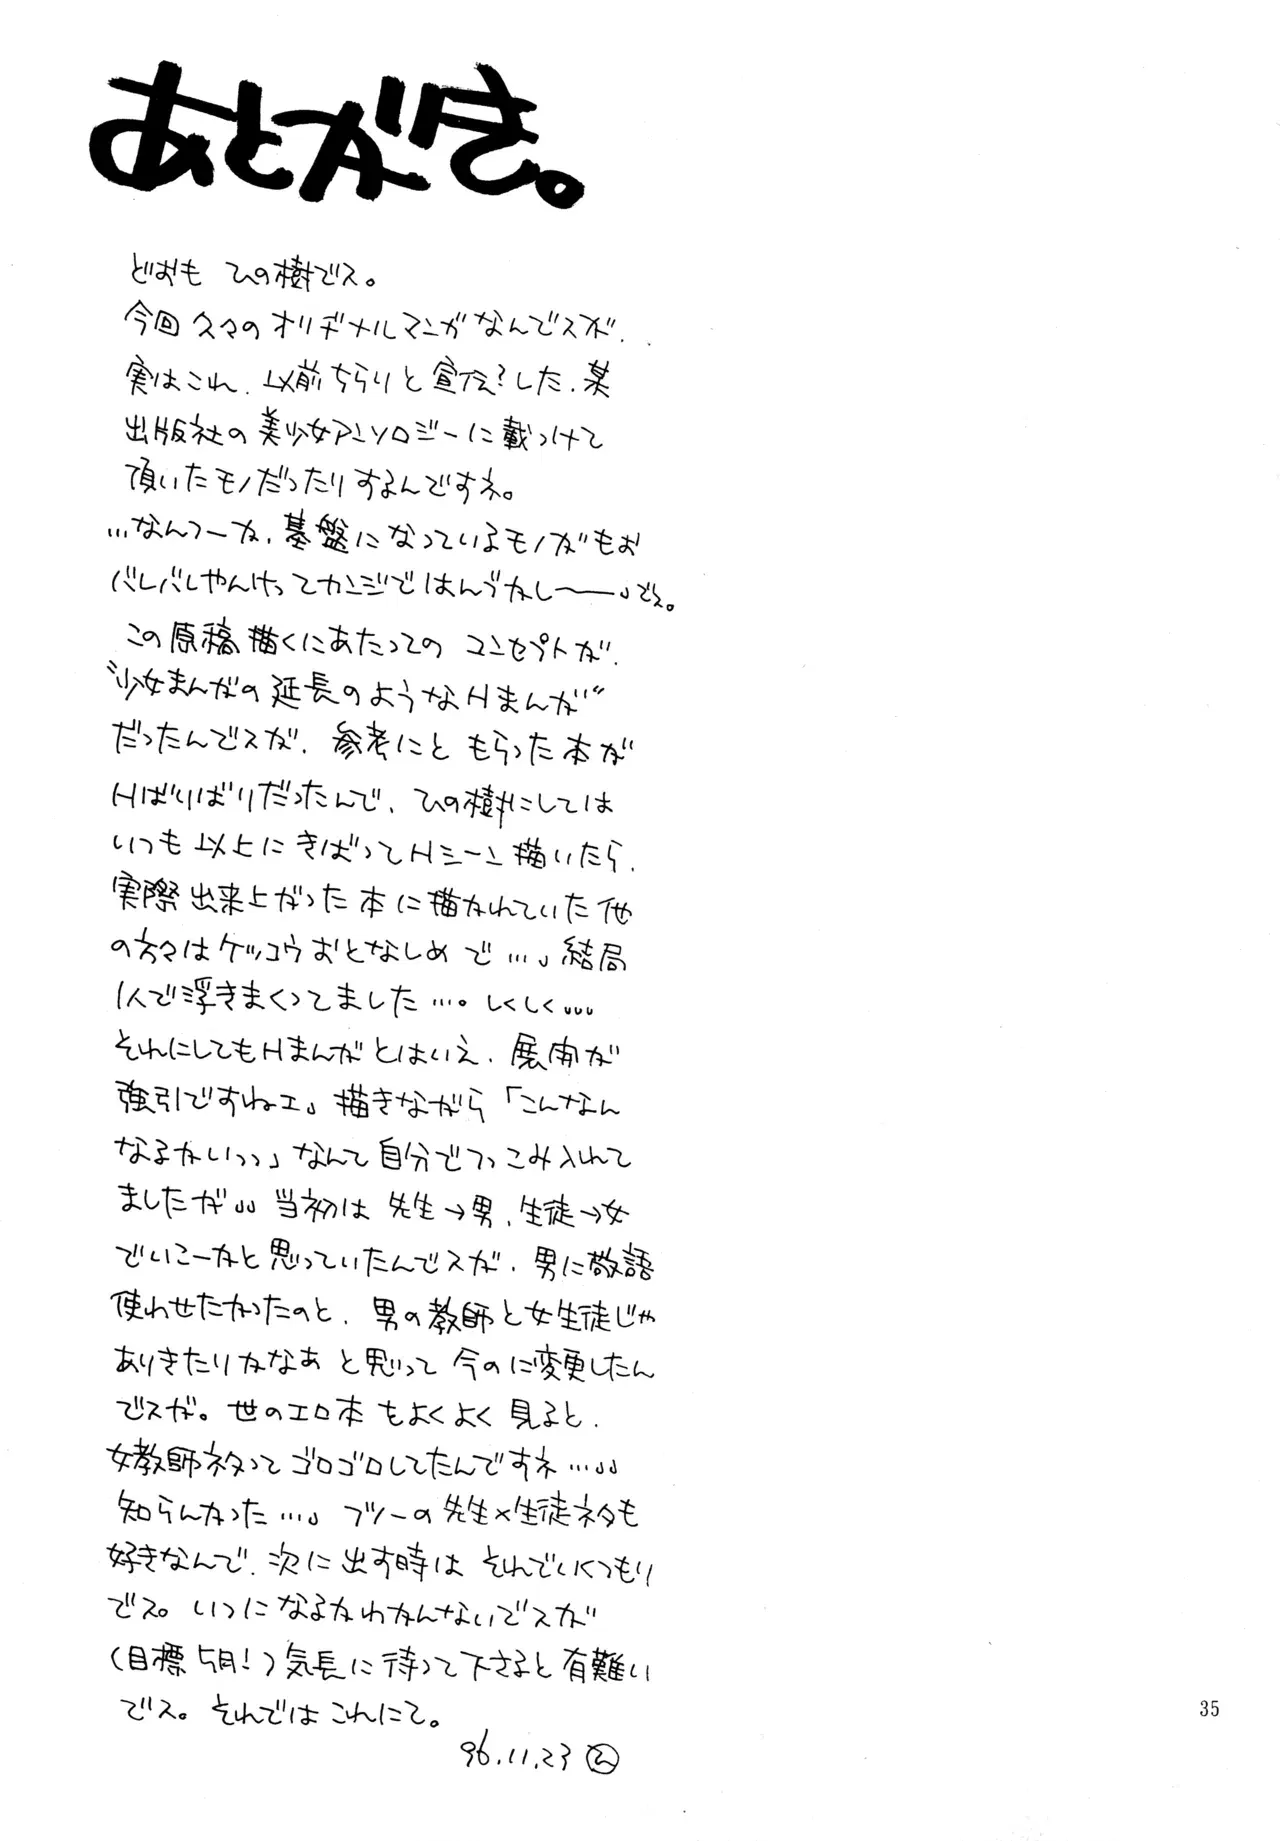 あとがき。
どおも ひの樹でス。
今回久々のオリヂナルマンガなんでスが、
実はこれ、以前ちらりと宣伝?した、某
出版社の美少女アンソロジーに載っけて
頂いたモノだったりするんですネ。
…なんつーか、基盤になっているモノがもお
バレバレやんけってカンジではんづかし〜でス。
この原稿描くにあたっての コンセプトが、
"少女まんがの延長のようなHまんが"
だったんでスが、参考にと もらった本が
Hばりばりだったんで、ひの樹にしては
いつも以上にきばってHシーン描いたら、
実際出来上がった本に描かれていた他
の方々はケッコウおとなしめで…結局
1人で浮きまくってました…。しくしく…
それにしてもHまんがとはいえ、展開が
強引ですねェ 描きながら「こんなん
なるかいっっ」なんて自分でつっこみ入れて
ましたが 当初は 先生→男、生徒→女
でいこーかと思っていたんでスが、男に敬語
使わせたかったのと、男の教師と女生徒じゃ
ありきたりかなあと思って今のに変更したん
でスが。世のエロ本もよくよく見ると、
女教師ネタってゴロゴロしてたんですネ…
知らんかった… フツーの先生×生徒ネタも
好きなんで、次に出す時はそれでいくつもり
でス。いつになるかわかんないでスが
(目標5月!)気長に待って下さると有難い
でス。それではこれにて。
96.11.23 ひ
35